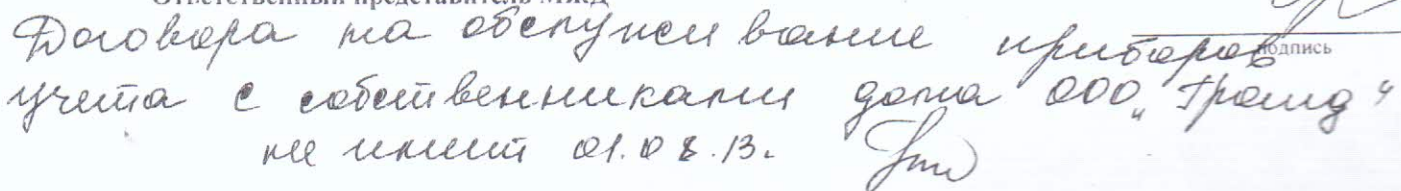 Ответственный представитель МКД
Договора на обслуживание приборов
подпись
учета с собственниками дома ООО „Граид"
не имеет 01.08.13.